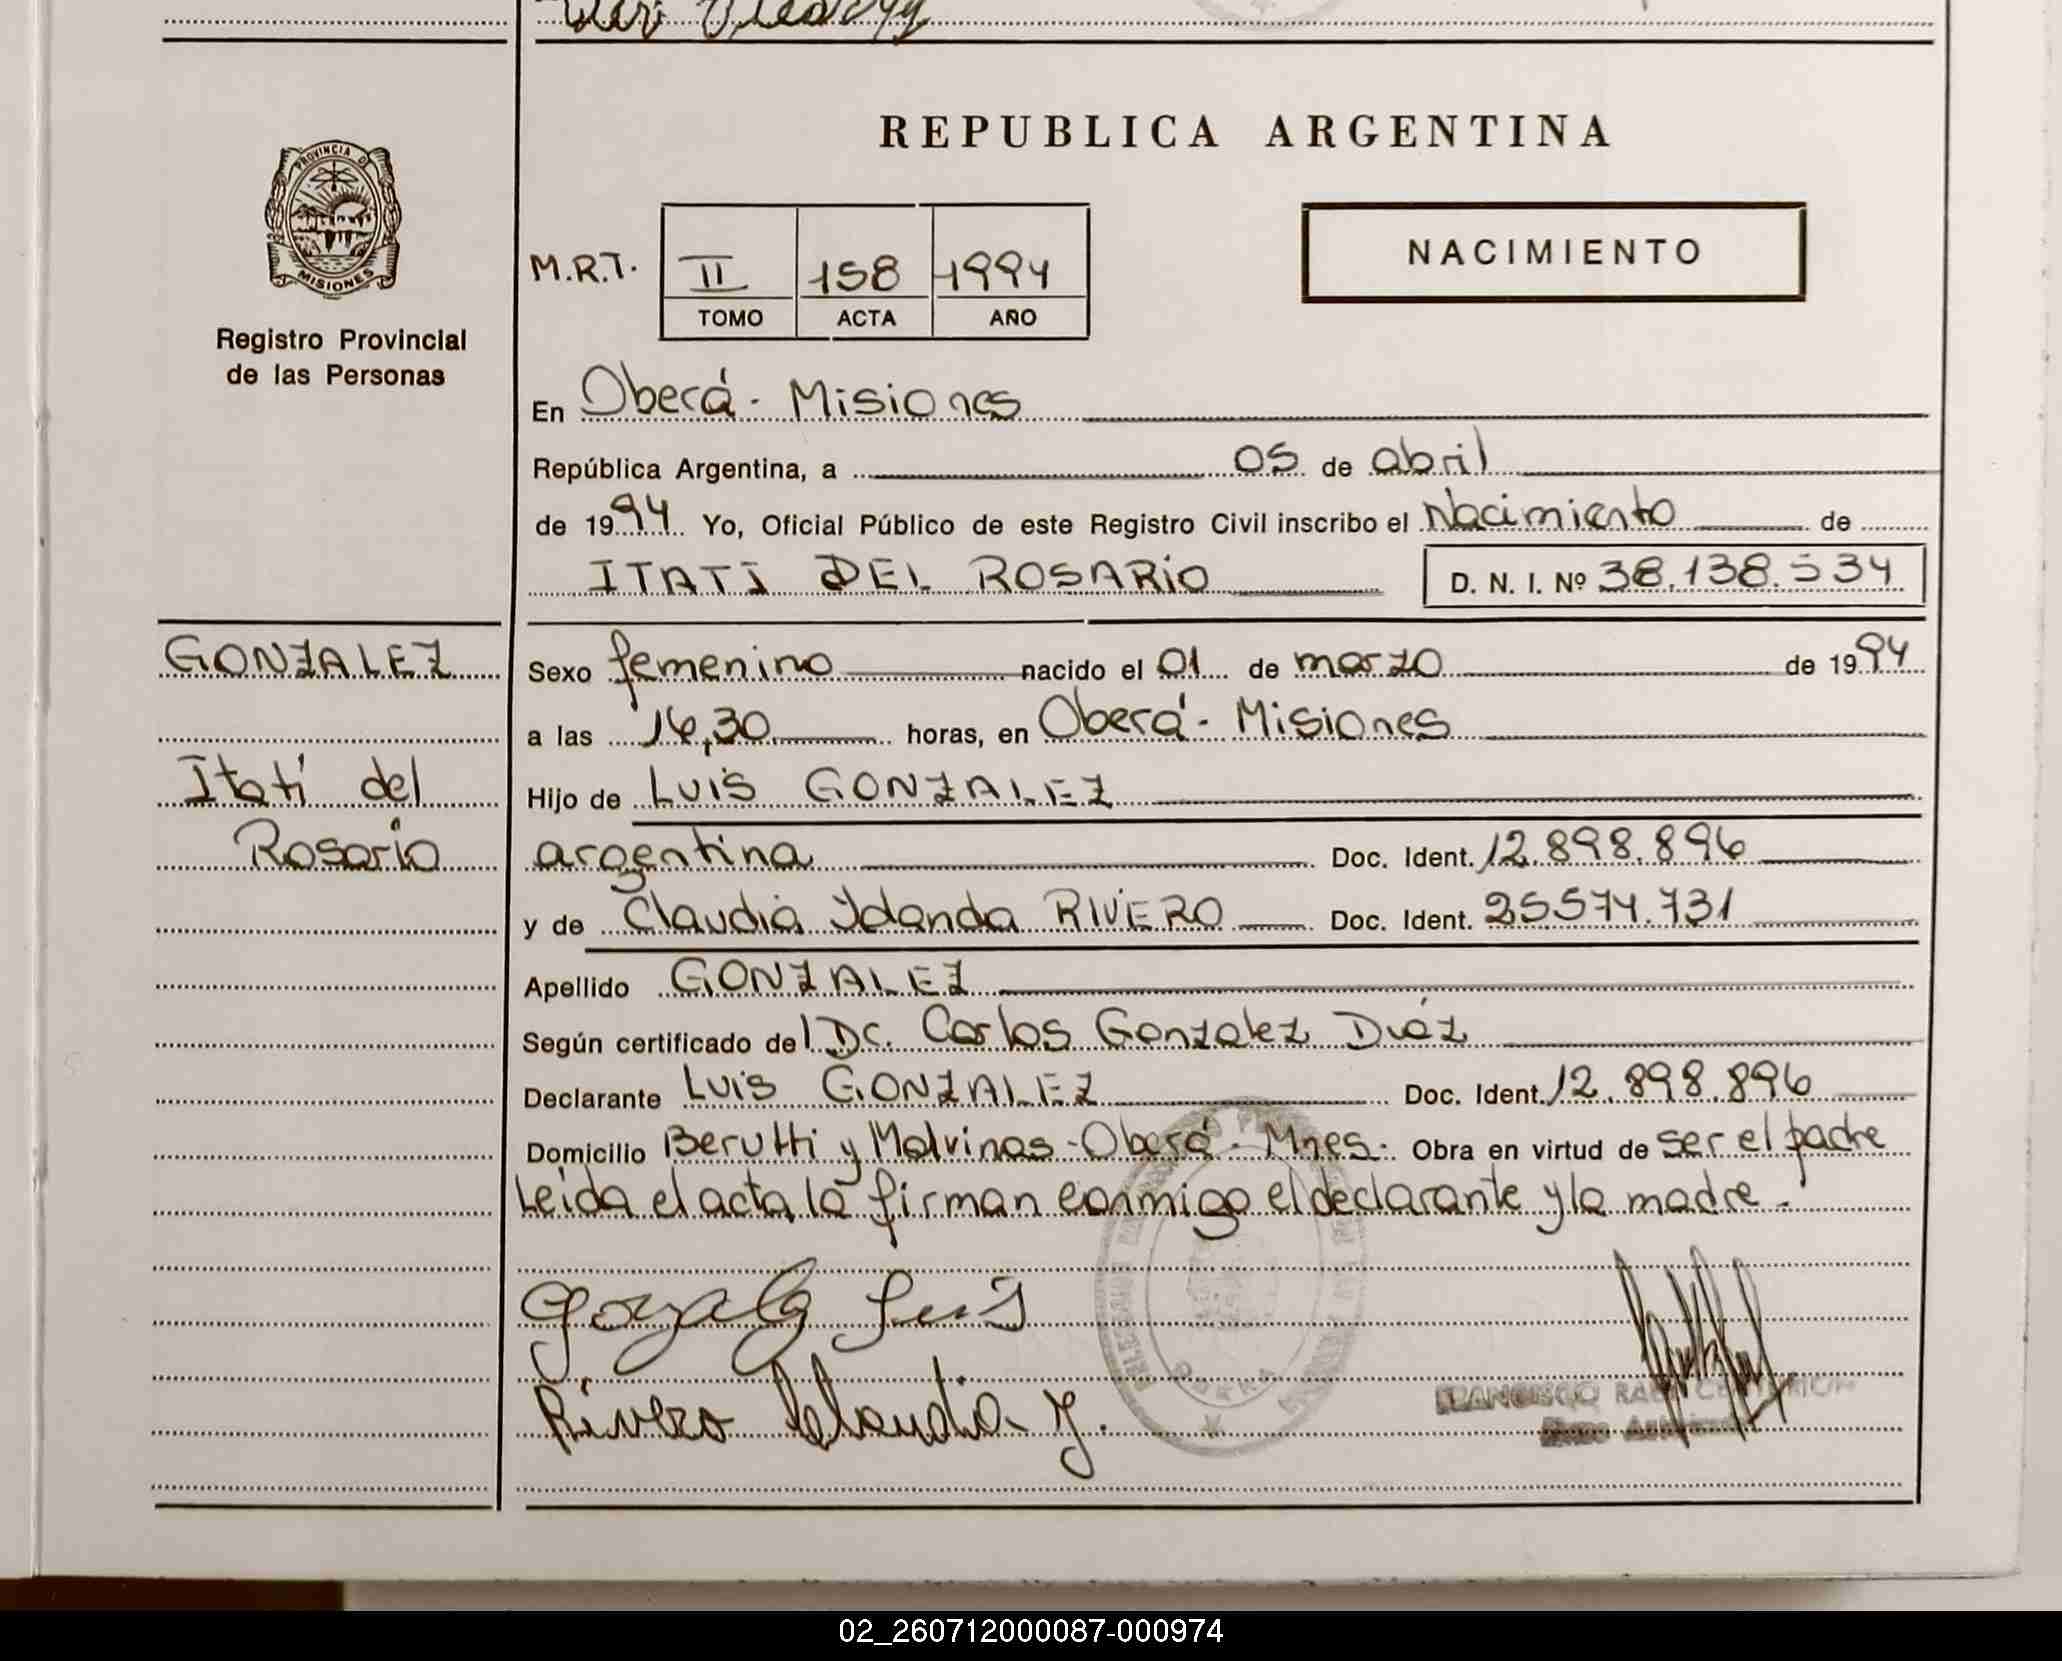 REPUBLICA ARGENTINA
PROVINCIA DE
MISIONES
Registro Provincial
de las Personas
M.R.T.
II 158 1994
TOMO ACTA AÑO
NACIMIENTO
En Oberá - Misiones
República Argentina, a 05 de abril
de 1994 Yo, Oficial Público de este Registro Civil inscribo el Nacimiento de
ITATI DEL ROSARIO D. N. I. Nº 38.138.534
GONZALEZ
Itatí del
Rosario
Sexo femenino nacido el 01 de marzo de 1994
a las 16,30 horas, en Oberá - Misiones
Hijo de LUIS GONZALEZ
argentina Doc. Ident. 12.898.896
y de Claudia Yolanda RIVERO Doc. Ident. 25574.731
Apellido GONZALEZ
Según certificado del Dr. Carlos Gonzalez Diáz
Declarante LUIS GONZALEZ Doc. Ident. 12.898.896
Domicilio Berutti y Malvinas - Oberá - Mnes. Obra en virtud de ser el padre
Leida el acta la firman conmigo el declarante y la madre.
Gonzalez Luis
Rivero Claudia Y.
FRANCISCO
02_260712000087-000974